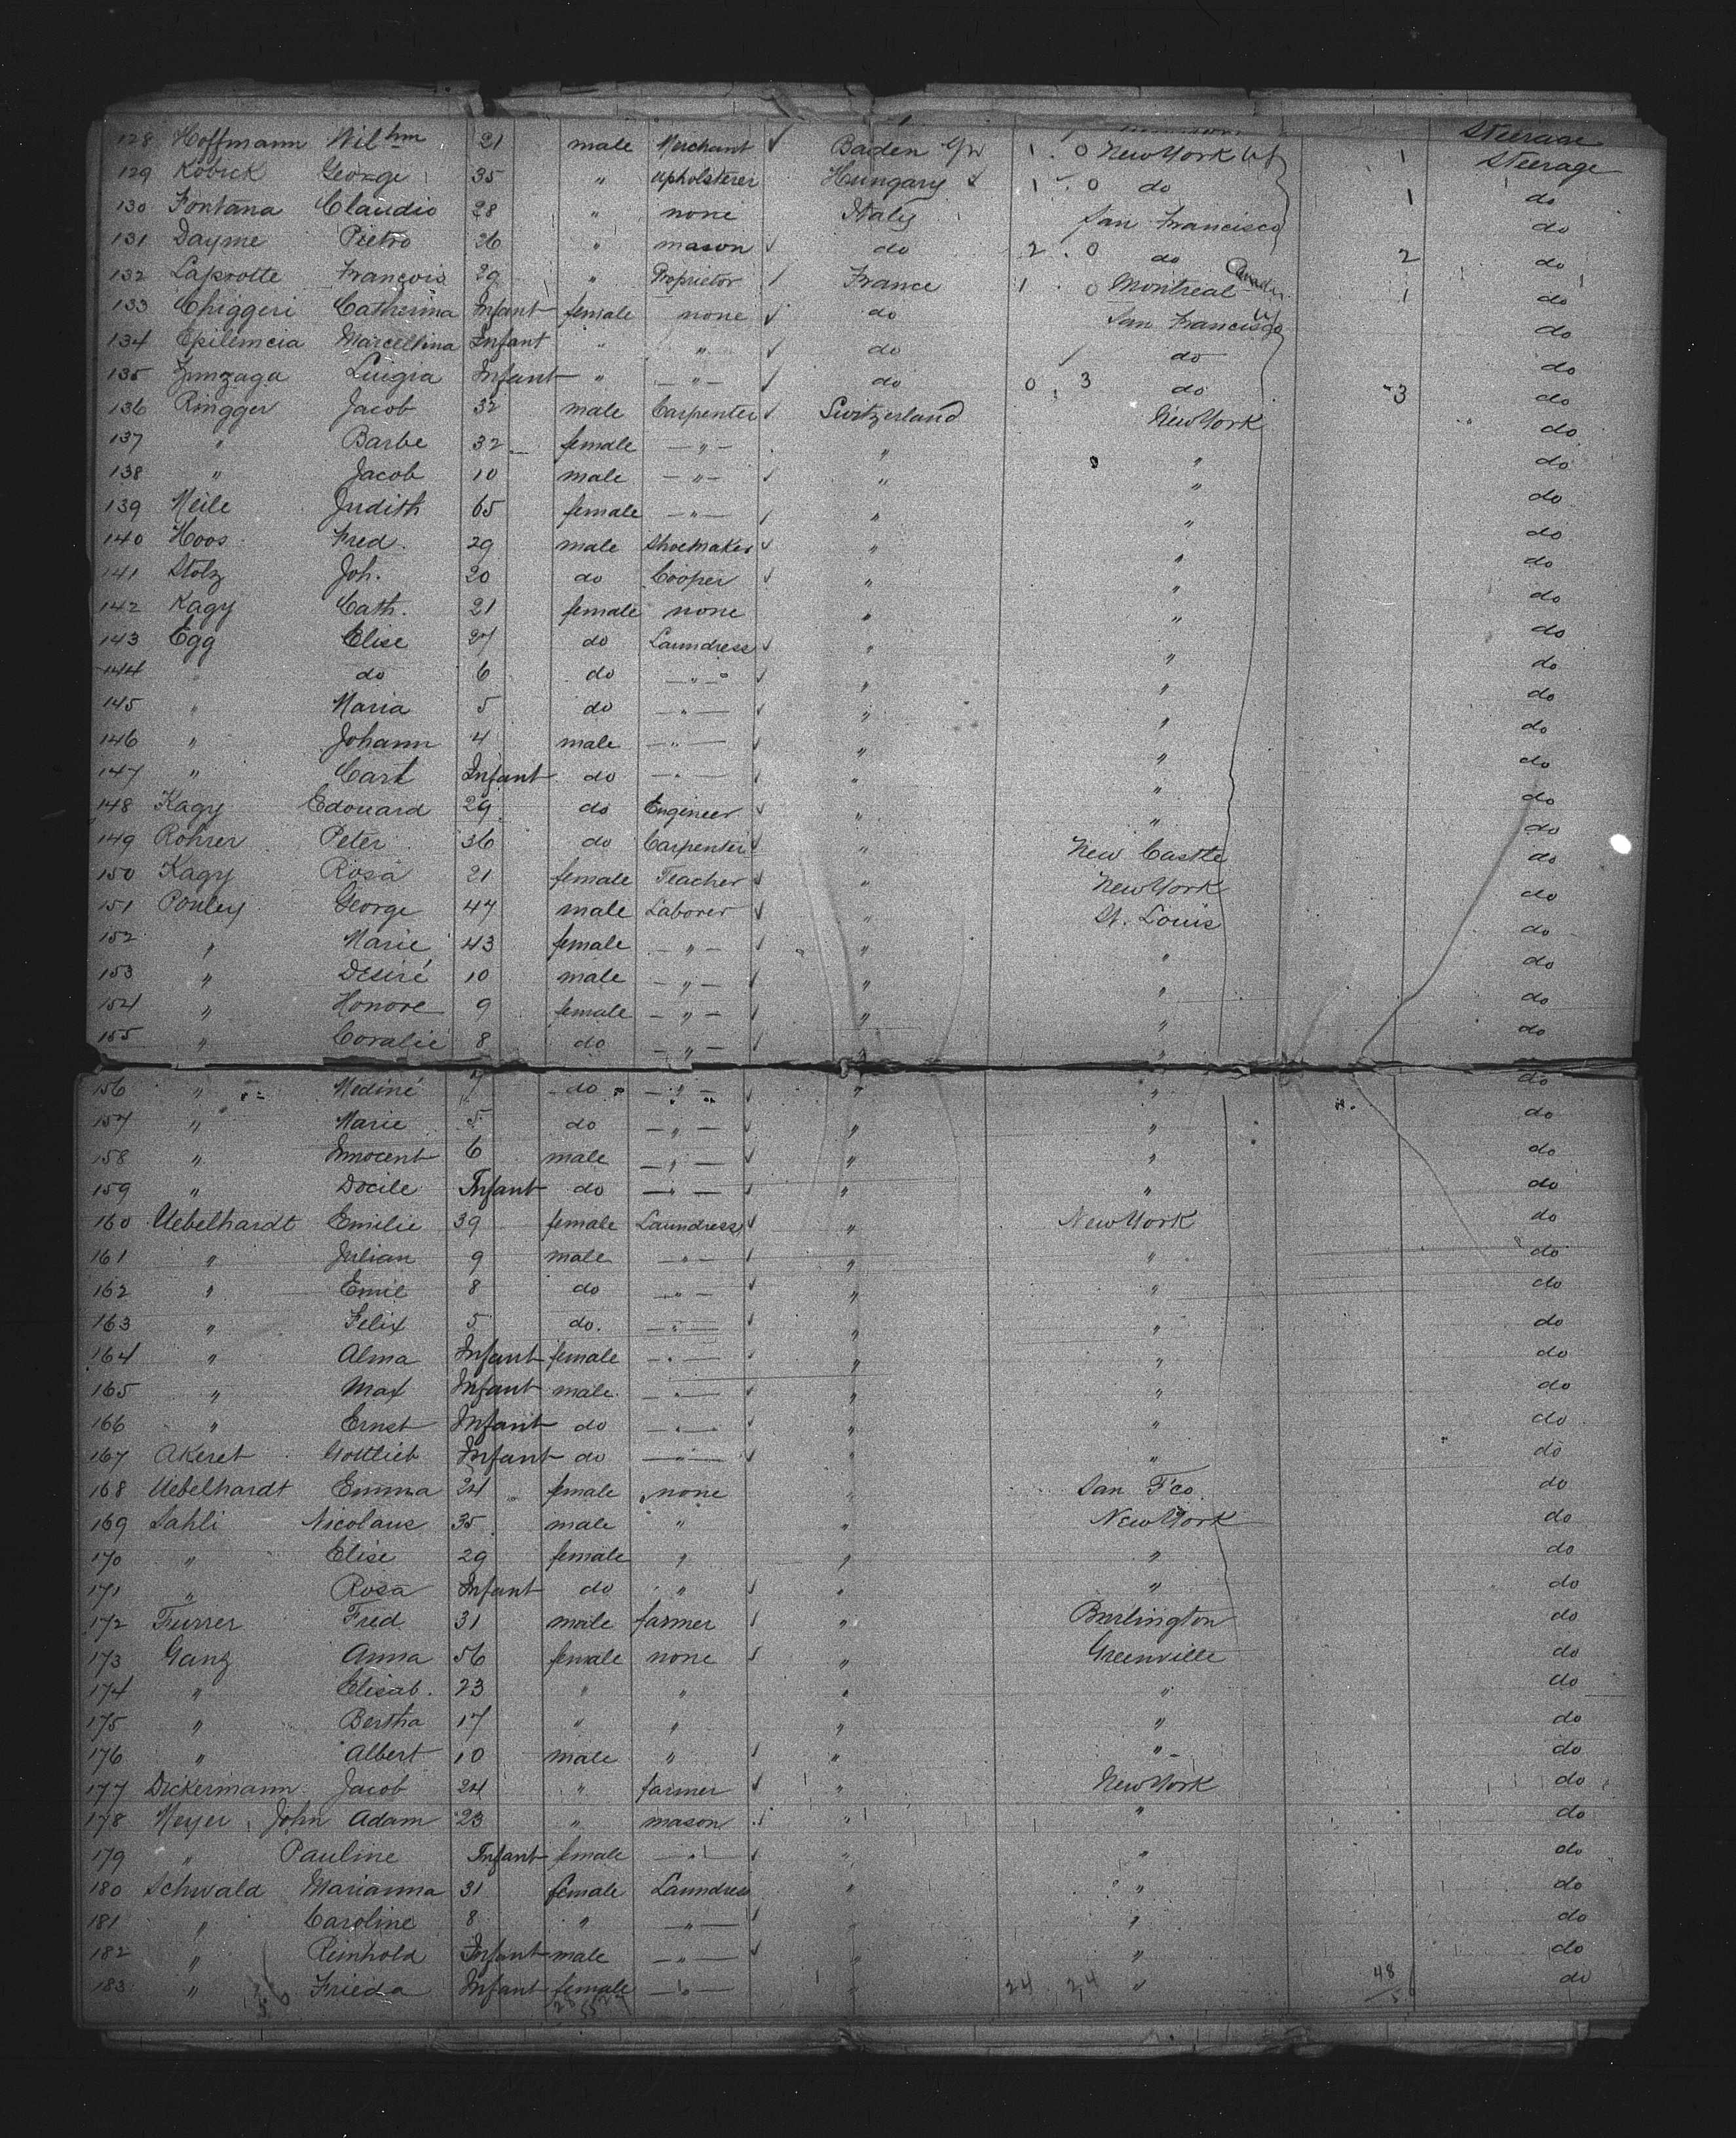 128 Hoffmann Wilhm 21 male Merchant ✓ Baden 1 . 0 New York 1 Steerage
129 Kobick George 35 " Upholsterer Hungary 1 . 0 do 1 Steerage
130 Fontana Claudio 28 " none Italy San Francisco do
131 Dayme Pietro 26 " mason ✓ do 2 . 0 do 2 do
132 Laprotte François 29 " Proprietor ✓ France 1 . 0 Montreal Canada 1 do
133 Chiggeri Catherina Infant female none ✓ do San Francisco do
134 Epilemcia Marcellina Infant " " ✓ do do do
135 Luigia Infant " " ✓ do 0 . 3 do 3 do
136 Ringger Jacob 32 male Carpenter ✓ Switzerland New York do
137 " Barbe 32 female " " " do
138 " Jacob 10 male " ✓ " " do
139 Meile Judith 65 female " ✓ " " do
140 Hoos Fred. 29 male Shoemaker ✓ " " do
141 Stolz Joh. 20 do Cooper ✓ " " do
142 Kagy Cath. 21 female none " " do
143 Egg Elise 27 do Laundress ✓ " " do
144 " do 6 do " ✓ " " do
145 " Maria 5 do " ✓ " " do
146 " Johann 4 male " ✓ " " do
147 " Carl Infant do " ✓ " " do
148 Kagy Edouard 29 do Engineer ✓ " " do
149 Rohrer Peter 36 do Carpenter ✓ " New Castle do
150 Kagy Rosa 21 female Teacher ✓ " New York do
151 Pouley George 47 male Laborer ✓ " St. Louis do
152 " Marie 43 female " ✓ " " do
153 " Desiré 10 male " ✓ " " do
154 " Honore 9 female " ✓ " " do
155 " Coralie 8 do " ✓ " " do
156 " Mediné 7 do " ✓ " " do
157 " Marie 5 do " ✓ " " do
158 " Innocent 6 male " ✓ " " do
159 " Docile Infant do " ✓ " " do
160 Uebelhardt Emilie 39 female Laundress ✓ " New York do
161 " Julian 9 male " ✓ " " do
162 " Emil 8 do " ✓ " " do
163 " Felix 5 do. " ✓ " " do
164 " Alma Infant female " ✓ " " do
165 " Max Infant male " ✓ " " do
166 " Ernst Infant do " ✓ " " do
167 Akeret Gottlieb Infant do " ✓ " " do
168 Uebelhardt Emma 24 female none " San F'co. do
169 Sahli Nicolaus 35 male " " New York do
170 " Elise 29 female " " " do
171 " Rosa Infant do " ✓ " " do
172 Furrer Fred 31 male farmer ✓ " Burlington do
173 Ganz Anna 56 female none ✓ " Greenville do
174 " Elisab. 23 " " " " do
175 " Bertha 17 " " " " do
176 " Albert 10 male " ✓ " " do
177 Dickermann Jacob 24 " farmer ✓ " New York do
178 Meyer John Adam 23 " mason ✓ " " do
179 " Pauline Infant female " ✓ " " do
180 Schwald Marianna 31 female Laundress " " do
181 " Caroline 8 " " ✓ " " do
182 " Reinhold Infant male " ✓ " " do
183 " Frieda Infant female " " 24 . 24 " 48 do